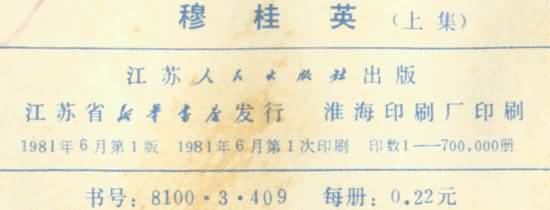 穆桂英(上集)
江苏人民出版社出版
江苏省新华书店发行 淮海印刷厂印刷
1981年6月第1版 1981年6月第1次印刷 印数1——700,000册
书号：8100·3·409 每册：0.22元